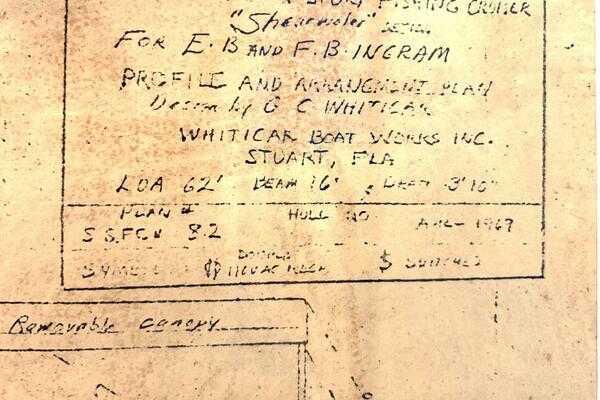 SPORT FISHING CRUISER
"Shearwater" DESIGN
FOR E. B AND F. B. INGRAM
PROFILE AND ARRANGMENT PLAN
Design by G C WHITICAR
WHITICAR BOAT WORKS INC.
STUART, FLA
LOA 62' BEAM 16' DRAFT 3'10"
PLAN # HULL NO 1967
S S.FCN 8.2
DOUBLE
$ SWITCHES
Removable canopy